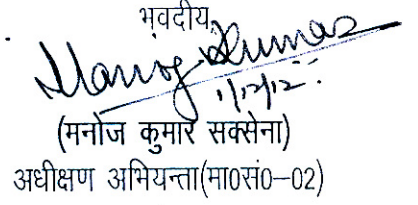 भवदीय,
Manoj Kumar
1/12/12
(मनोज कुमार सक्सेना)
अधीक्षण अभियन्ता(मा0सं0–02)